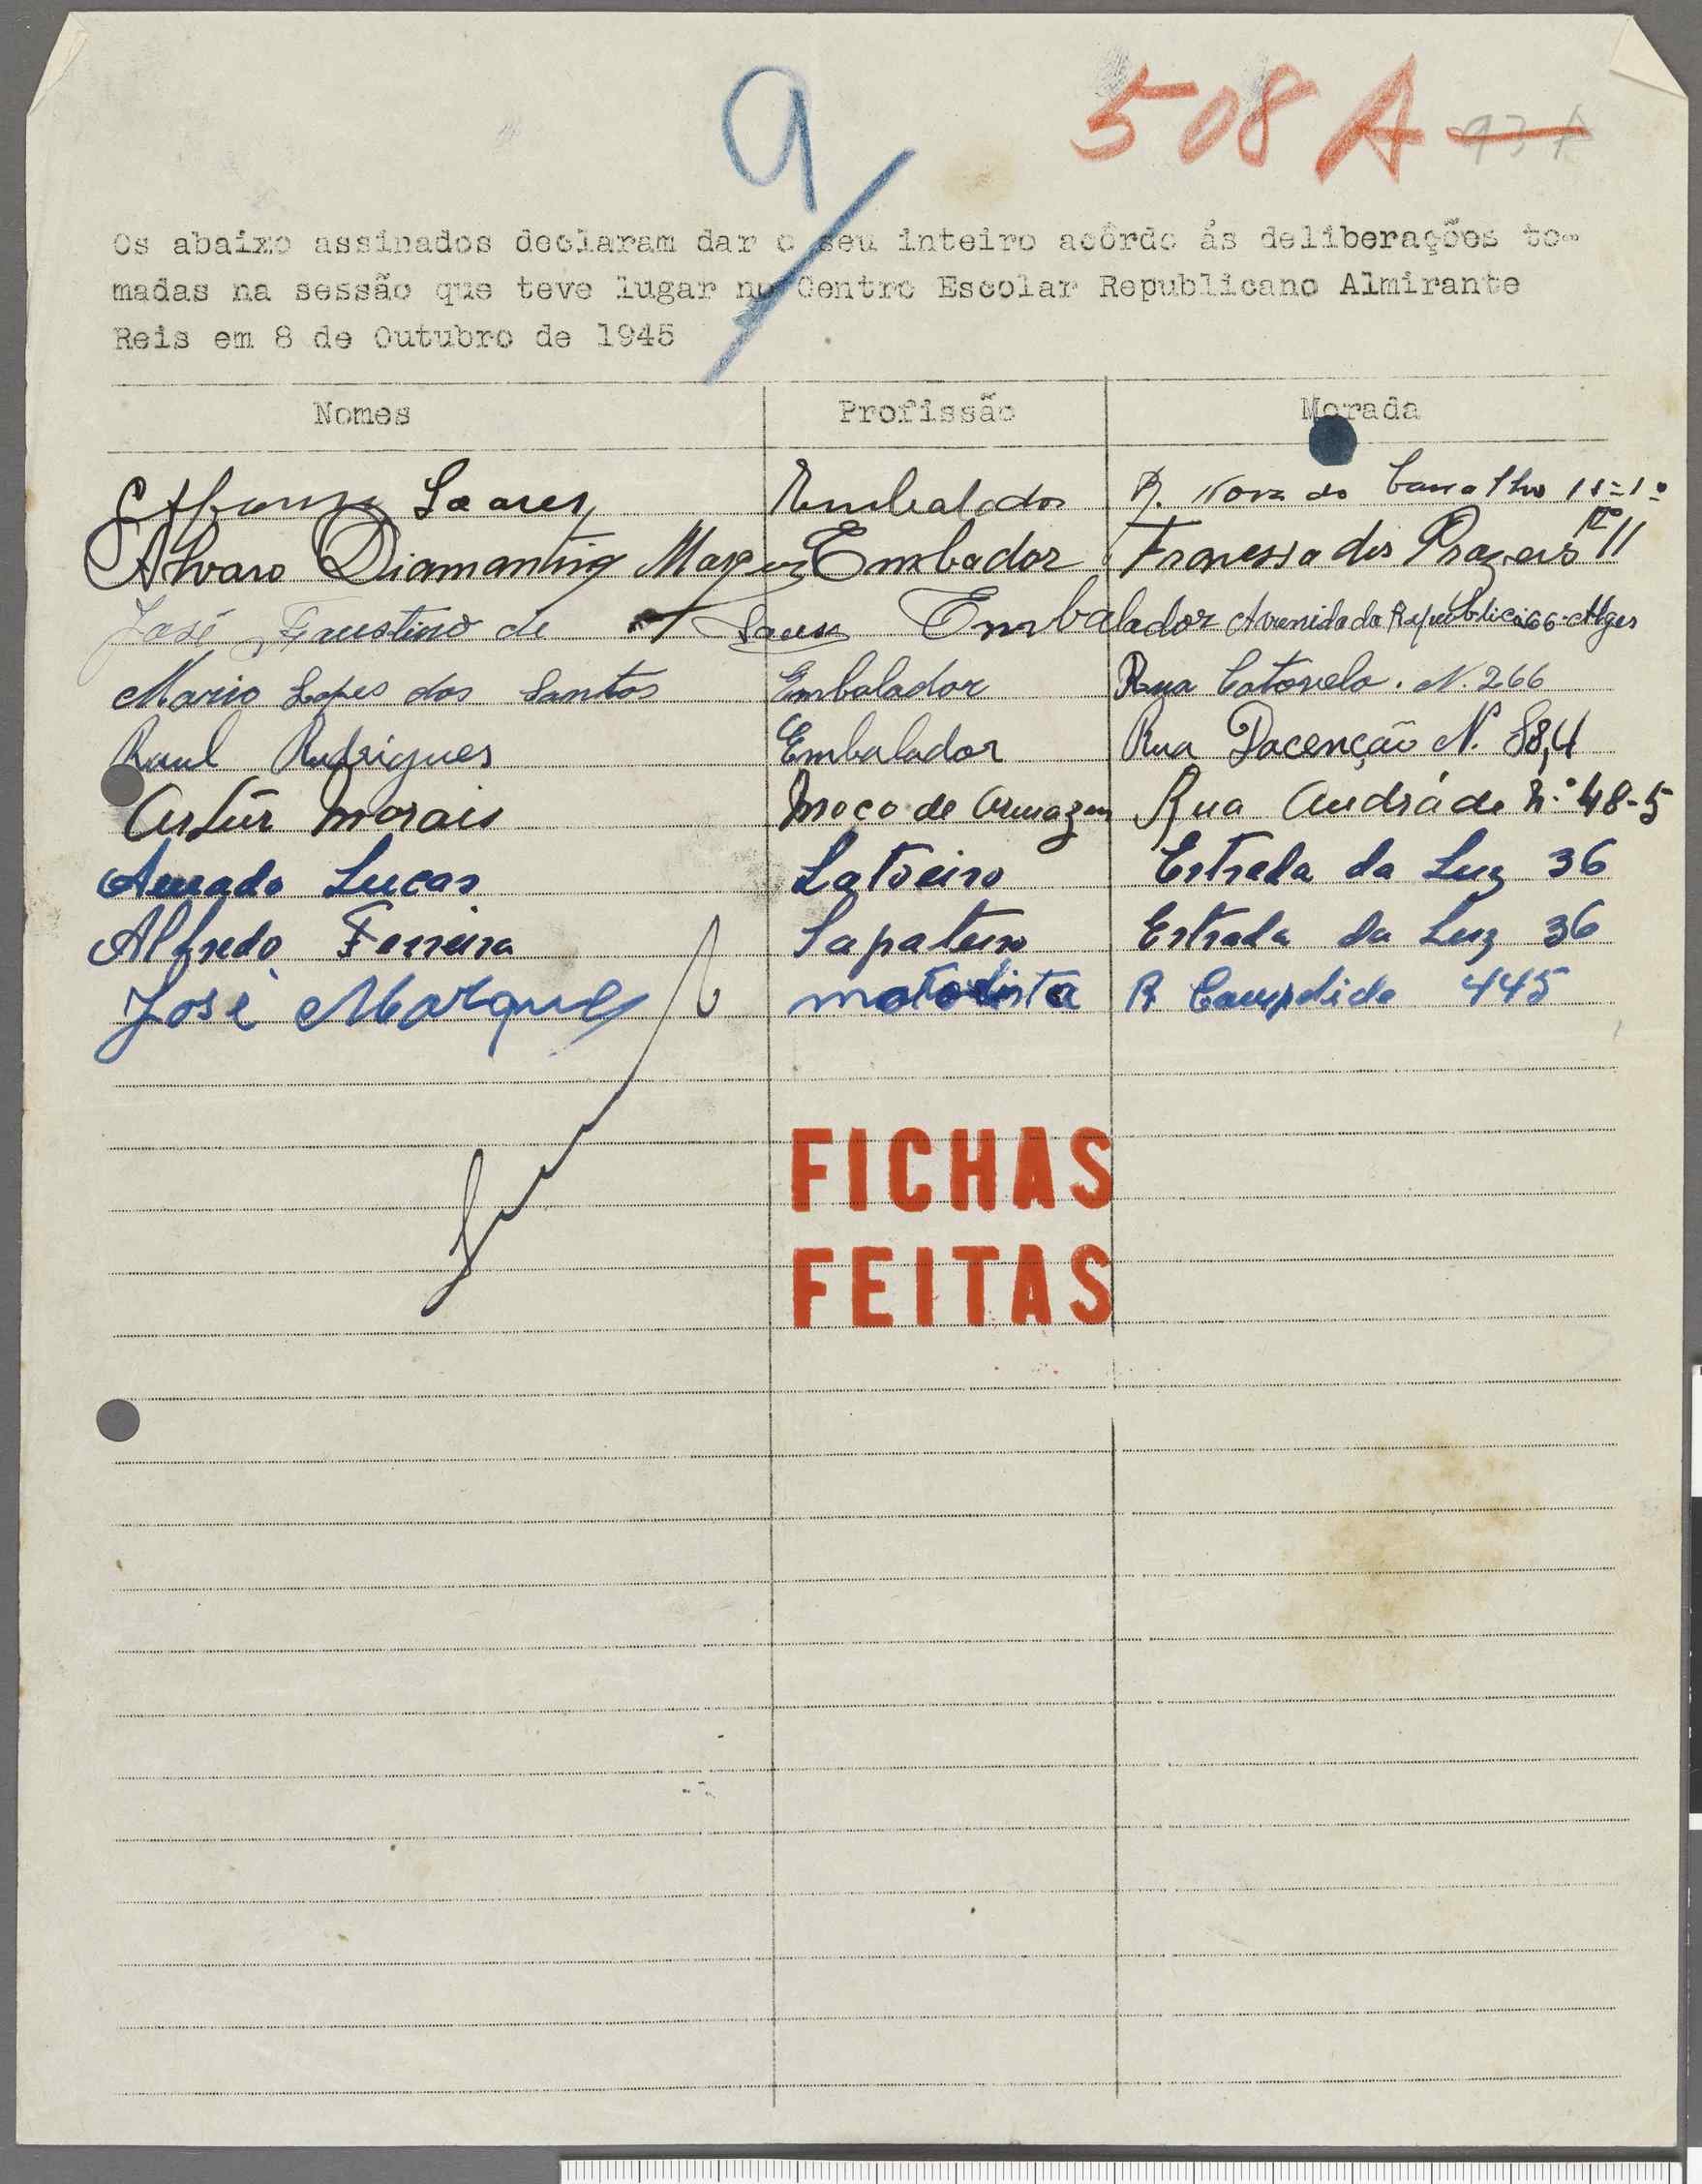 9
508 A
93 A
Os abaixo assinados declaram dar o seu inteiro acôrdo ás deliberações to-
madas na sessão que teve lugar no Centro Escolar Republicano Almirante
Reis em 8 de Outubro de 1945
Nomes Profissão Morada
Affonso Soares Embalador R. Nova do Carvalho 15=1º
Alvaro Diamantino Embador dos Prazeres 11
José Faustino de Embalador Avenida da Republica 66-Alges
Mario Lopes dos Santos Embalador Rua Catovelo. N. 266
Raul Rodrigues Embalador Rua Docenção N. 88,4
Artúr Morais Moço de Armazem Rua Andráde N.º 48-5
Amado Lucas Latoeiro Estrada da Luz 36
Alfredo Ferreira Sapateiro Estrada da Luz 36
José Marques motorista R Campolide 445
FICHAS
FEITAS